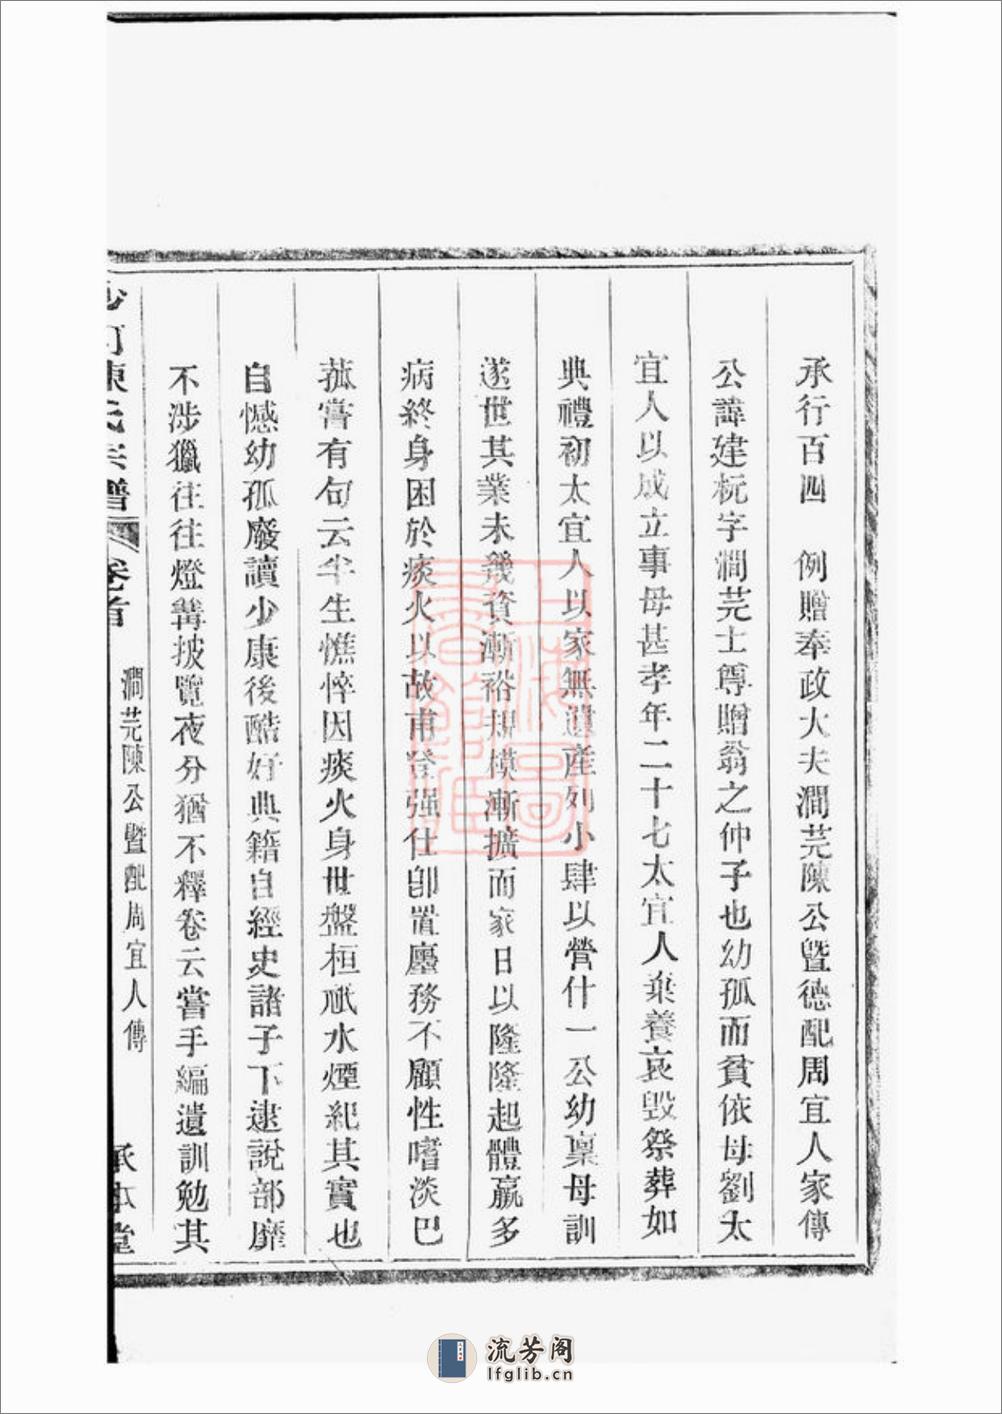 承行百四　例贈奉政大夫澗芫陳公暨德配周宜人家傳
公諱建杬字澗芫士尊贈翁之仲子也幼孤而貧依母劉太
宜人以成立事母甚孝年二十七太宜人棄養哀毀祭葬如
典禮初太宜人以家無遺產列小肆以營什一公幼稟母訓
遂世其業未幾資漸裕規模漸擴而家日以隆隆起體羸多
病終身困於痰火以故甫登强仕卽置廛務不顧性嗜淡巴
菰嘗有句云半生憔悴因痰火身世盤桓祇水煙紀其實也
自憾幼孤廢讀少康後酷好典籍自經史諸子下逮說部靡
不涉獵往往燈篝披覽夜分猶不釋卷云嘗手編遺訓勉其
陳氏宗譜　卷首　澗芫陳公暨配周宜人傳　承本堂
上海圖書館藏
流芳阁
lfglib.cn